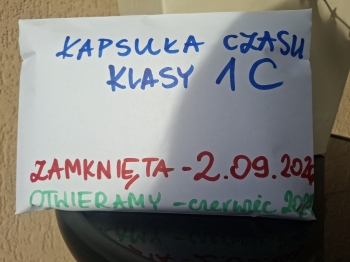 KAPSUŁKA CZASU
KLASY 1C
ZAMKNIĘTA - 2.09.202
OTWIERAMY - czerwiec 202